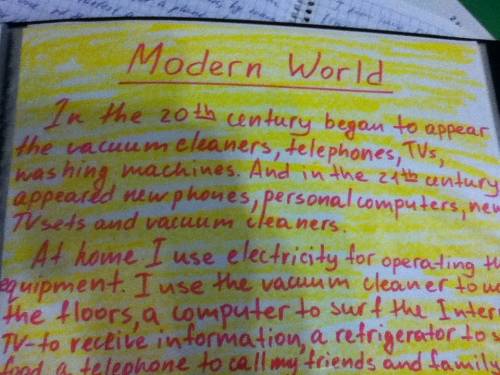 Modern World
In the 20th century began to appear
the vacuum cleaners, telephones, TVs,
washing machines. And in the 21th century
appeared new phones, personal computers, new
TVsets and vacuum cleaners.
At home I use electricity for operating
equipment. I use the vacuum cleaner to
the floors, a computer to surf the
TV-to receive information, a refrigerator to
food, a telephone to call my friends and